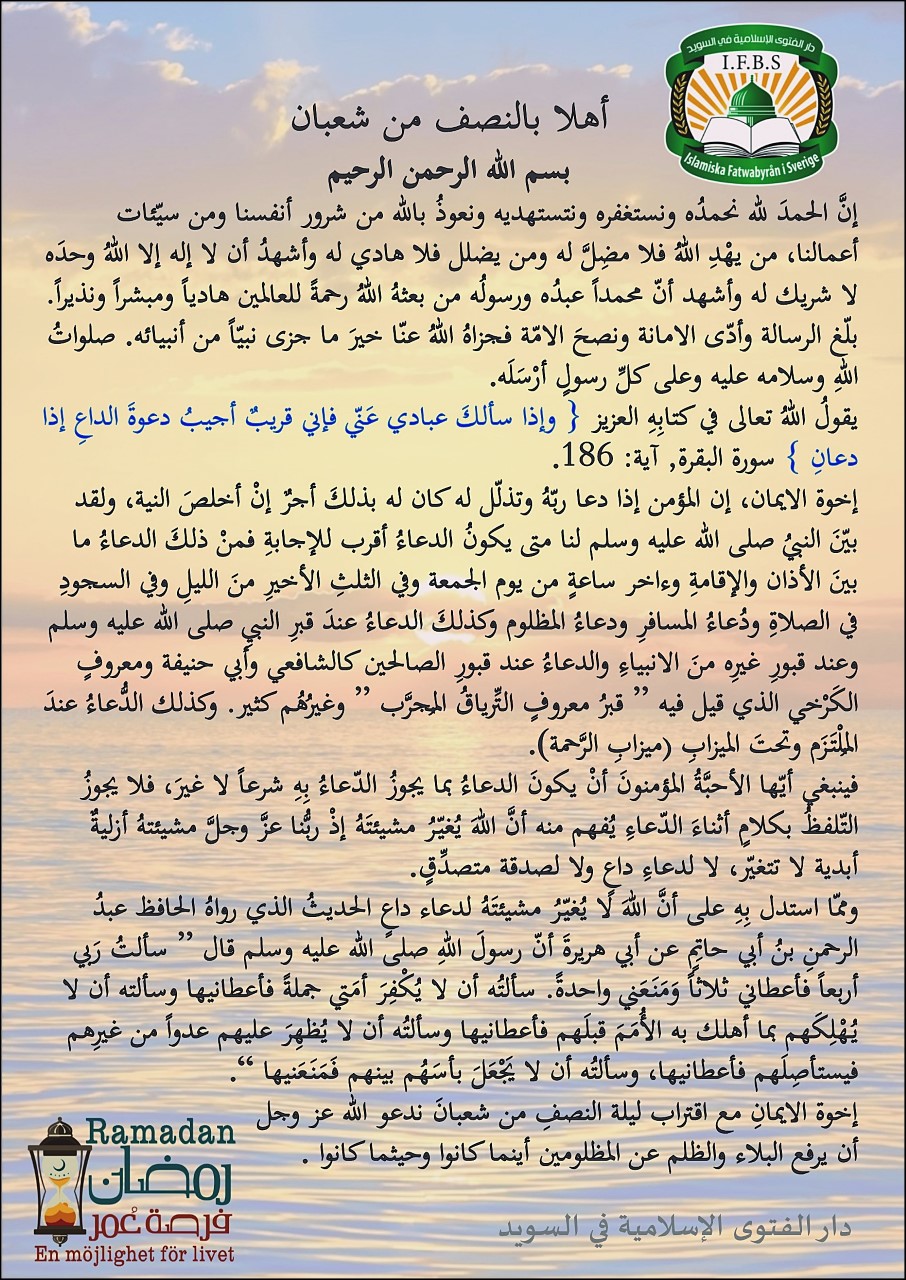 دار الفتوى الإسلامية في السويد
I.F.B.S
Islamiska Fatwabyrån i Sverige
أهلا بالنصف من شعبان
بسم الله الرحمن الرحيم
إنَّ الحمدَ لله نحمدُه ونستغفره ونتستهديه ونعوذُ بالله من شرور أنفسنا ومن سيّئات
أعمالنا، من يهْدِ اللهُ فلا مضِلَّ له ومن يضلل فلا هادي له وأشهدُ أن لا إله إلا اللهُ وحدَه
لا شريك له وأشهد أنّ محمداً عبدُه ورسولُه من بعثهُ اللهُ رحمةً للعالمين هادياً ومبشراً ونذيراً.
بلّغ الرسالة وأدّى الامانة ونصحَ الامّة فجزاهُ اللهُ عنّا خيرَ ما جزى نبيّاً من أنبيائه. صلواتُ
اللهِ وسلامه عليه وعلى كلِّ رسولٍ أرْسَلَه.
يقولُ اللهُ تعالى في كتابِهِ العزيز { وإذا سألكَ عبادي عَنّي فإني قريبٌ أجيبُ دعوةَ الداعِ إذا
دعانِ } سورة البقرة, آية: 186.
إخوة الايمان، إن المؤمن إذا دعا ربّهُ وتذلّل له كان له بذلكَ أجرٌ إنْ أخلصَ النية، ولقد
بيّنَ النبيُ صلى الله عليه وسلم لنا متى يكونُ الدعاءُ أقرب للإجابةِ فمنْ ذلكَ الدعاءُ ما
بينَ الأذان والإقامةِ وءاخر ساعةٍ من يوم الجمعة وفي الثلثِ الأخيرِ منَ الليلِ وفي السجودِ
في الصلاةِ ودُعاءُ المسافرِ ودعاءُ المظلوم وكذلكَ الدعاءُ عندَ قبرِ النبي صلى الله عليه وسلم
وعند قبورِ غيرِه منَ الانبياءِ والدعاءُ عند قبورِ الصالحين كالشافعي وأبي حنيفة ومعروفٍ
الكَرْخي الذي قيل فيه ” قبرُ معروفٍ التِّرياقُ المجرَّب ” وغيرُهُم كثير. وكذلك الدُّعاءُ عندَ
المُلْتَزَم وتحتَ الميزابِ (ميزابِ الرَّحمة).
فينبغي أيّها الأحبَّةُ المؤمنونَ أنْ يكونَ الدعاءُ بما يجوزُ الدّعاءُ بِهِ شرعاً لا غيرَ، فلا يجوزُ
التّلفظُ بكلامٍ أثناءَ الدّعاءِ يُفهم منه أنَّ اللهَ يُغيّرُ مشيئتَهُ إذْ ربُّنا عزَّ وجلَّ مشيئتهُ أزليةٌ
أبدية لا تتغيّر، لا لدعاءِ داعٍ ولا لصدقة متصدِّقٍ.
وممّا استدل بِهِ على أنَّ اللهَ لَا يُغيّرُ مشيئتَهُ لدعاء داعٍ الحديثُ الذي رواهُ الحافظ عبدُ
الرحمنِ بنُ أبي حاتِمٍ عن أبي هريرةَ أنّ رسولَ اللهِ صلى الله عليه وسلم قال ” سألتُ رَبي
أربعاً فأعطاني ثلاثاً وَمَنَعَني واحدةً. سألتُه أن لا يُكْفِرَ أمَتي جملةً فأعطانيها وسألته أن لا
يُهْلِكَهم بما أهلك به الأُمَمَ قبلَهم فأعطانيها وسألتُه أن لا يُظهِرَ عليهم عدواً من غيرِهم
فيستأصِلَهم فأعطانيها، وسألتُه أن لا يَجْعَلَ بأسَهُم بينهم فَمَنَعَنيها “.
إخوة الايمانِ مع اقتراب ليلة النصفِ من شعبانَ ندعو الله عز وجل
أن يرفع البلاء والظلم عن المظلومين أينما كانوا وحيثما كانوا .
Ramadan
رمضان
فرصة عُمر
En möjlighet för livet
دار الفتوى الإسلامية في السويد